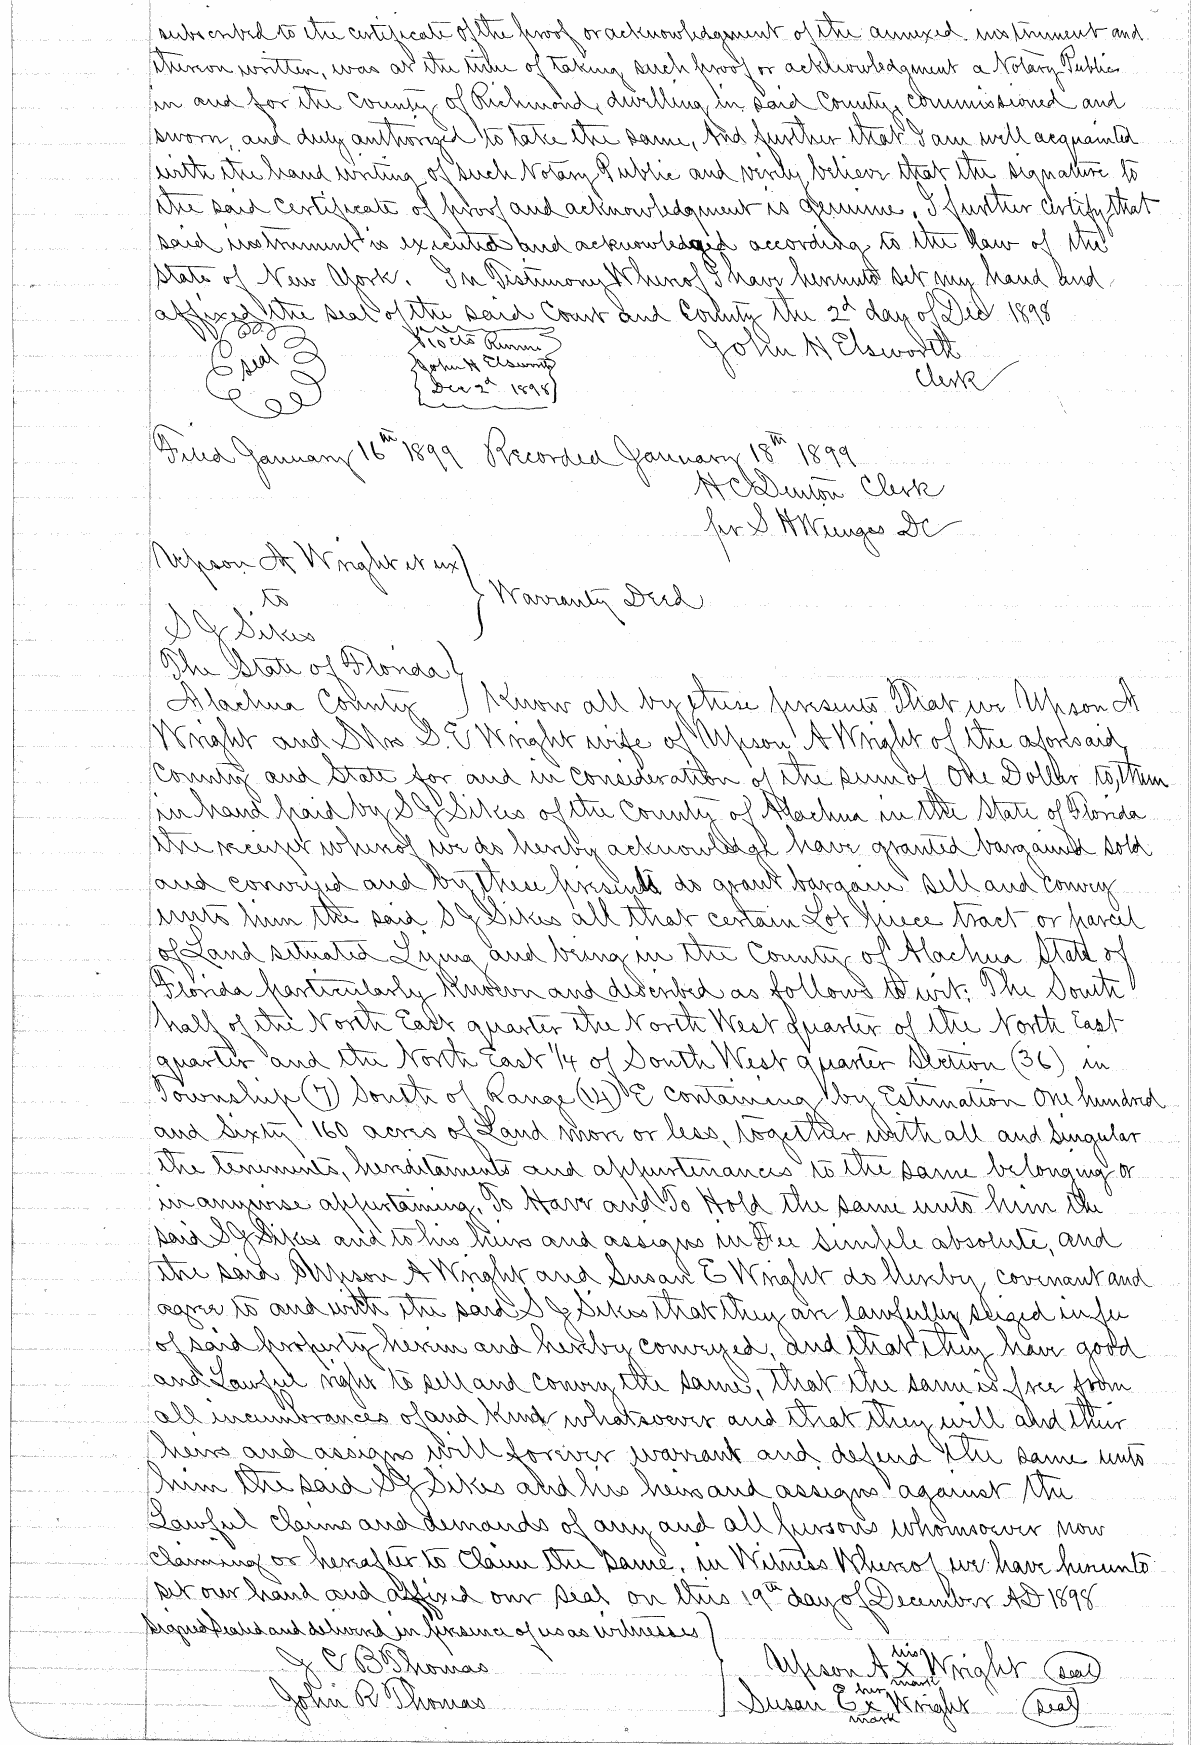 subscribed to the certificate of the proof or acknowledgment of the annexed instrument and
thereon written, was at the time of taking such proof or acknowledgment a Notary Public
in and for the County of Richmond, dwelling in said County, commissioned and
sworn, and duly authorized to take the same, And further that I am well acquainted
with the hand writing of such Notary Public and verily believe that the signature to
the said certificate of proof and acknowledgment is genuine. I further certify that
said instrument is executed and acknowledged according to the Law of the
State of New York. In Testimony Whereof I have hereunto set my hand and
affixed the seal of the said Court and County the 2d day of Dec 1898
seal
John H Elsworth
Dec 2d 1898
John H Elsworth
Clerk
Filed January 16th 1899 Recorded January 18th 1899
H C Denton Clerk
per S H Wienges DC
Upson A Wright et ux
to
S J Sikes
Warranty Deed
The State of Florida
Alachua County Know all by these presents That we Upson A
Wright and Mrs S. E Wright wife of Upson A Wright of the aforesaid
County and State for and in consideration of the sum of One Dollar to them
in hand paid by S J Sikes of the County of Alachua in the State of Florida
the receipt whereof we do hereby acknowledge have granted bargained sold
and conveyed and by these presents do grant bargain sell and convey
unto him the said S J Sikes all that certain Lot piece tract or parcel
of Land situated Lying and being in the County of Alachua State of
Florida particularly Known and described as follows to wit: The South
half of the North East quarter the North West quarter of the North East
quarter and the North East 1/4 of South West quarter Section (36) in
Township (7) South of Range (14) E containing by Estimation One hundred
and Sixty 160 acres of Land more or less, together with all and singular
the tenements, hereditaments and appurtenances to the same belonging or
in anywise appertaining, To Have and To Hold the same unto him the
said S J Sikes and to his heirs and assigns in Fee simple absolute, and
the said Upson A Wright and Susan E Wright do Hereby covenant and
agree to and with the said S J Sikes that they are lawfully seized in fee
of said property herein and hereby conveyed, and that they have good
and Lawful right to sell and convey the same, that the same is free from
all incumbrances of and kind whatsoever and that they will and their
heirs and assigns will forever warrant and defend the same unto
him the said S J Sikes and his heirs and assigns against the
Lawful claims and demands of any and all persons whomsoever now
claiming or hereafter to claim the same. in Witness Whereof we have hereunto
set our hand and affixed our seal on this 19th day of December AD 1898
Signed Sealed and delivered in presence of us as witnesses
J C B Thomas
John R Thomas
Upson A his x mark Wright seal
Susan E her x mark Wright seal